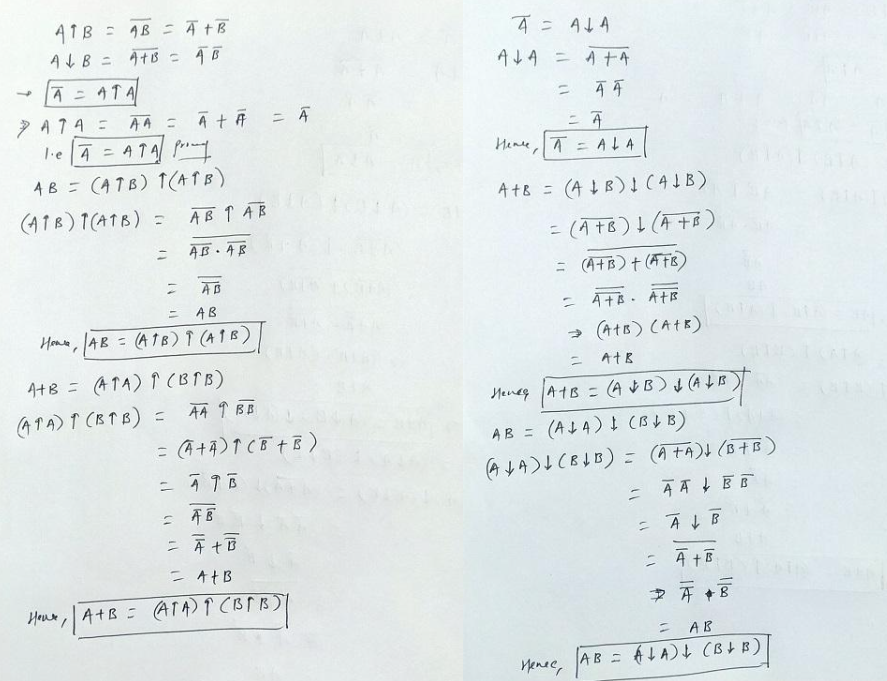 A↑B = \overline{AB} = \overline{A} + \overline{B}
A↓B = \overline{A+B} = \overline{A} \overline{B}
→ \overline{A} = A↑A
⇒ A↑A = \overline{AA} = \overline{A} + \overline{A} = \overline{A}
i.e \overline{A} = A↑A
AB = (A↑B) ↑(A↑B)
(A↑B)↑(A↑B) = \overline{AB} ↑ \overline{AB}
= \overline{\overline{AB} · \overline{AB}}
= \overline{\overline{AB}}
= AB
Hence, AB = (A↑B) ↑ (A↑B)
A+B = (A↑A) ↑ (B↑B)
(A↑A) ↑ (B↑B) = \overline{AA} ↑ \overline{BB}
= (\overline{A}+\overline{A}) ↑ (\overline{B} + \overline{B})
= \overline{A} ↑ \overline{B}
= \overline{\overline{A}\overline{B}}
= \overline{\overline{A}} + \overline{\overline{B}}
= A+B
Hence, A+B = (A↑A) ↑ (B↑B)
\overline{A} = A↓A
A↓A = \overline{A+A}
= \overline{A} \overline{A}
= \overline{A}
Hence, \overline{A} = A↓A
A+B = (A↓B)↓(A↓B)
= (\overline{A+B}) ↓ (\overline{A+B})
= \overline{(\overline{A+B}) + (\overline{A+B})}
= \overline{\overline{A+B}} · \overline{\overline{A+B}}
⇒ (A+B) (A+B)
= A+B
Hence, A+B = (A↓B) ↓ (A↓B)
AB = (A↓A) ↓ (B↓B)
(A↓A)↓(B↓B) = (\overline{A+A}) ↓ (\overline{B+B})
= \overline{A} \overline{A} ↓ \overline{B} \overline{B}
= \overline{A} ↓ \overline{B}
= \overline{\overline{A} + \overline{B}}
⇒ \overline{\overline{A}} · \overline{\overline{B}}
= AB
Hence, AB = (A↓A)↓ (B↓B)